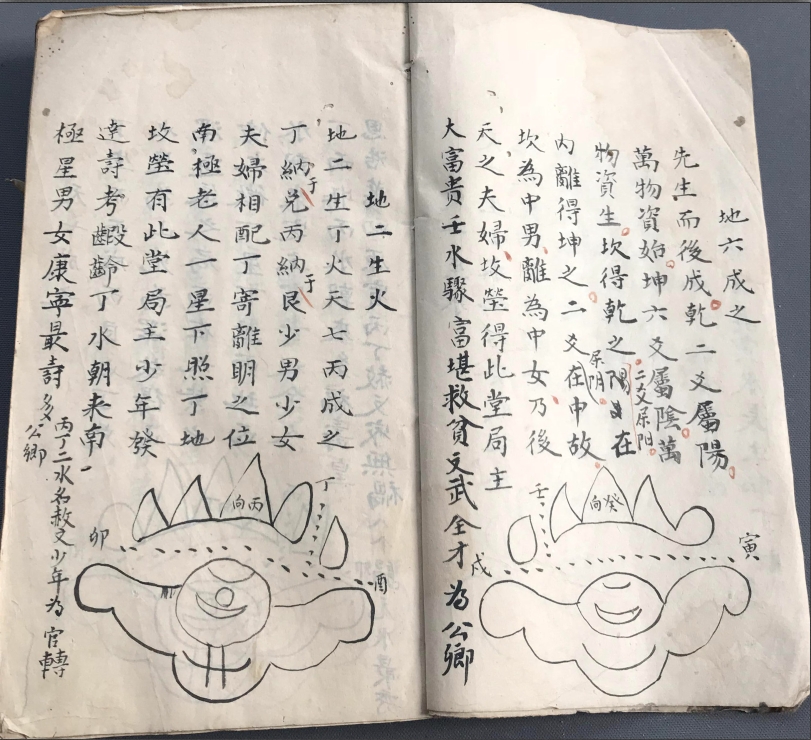 地六成之
先生而後成乾二爻屬陽
萬物資始坤六爻屬陰萬
物資生坎得乾之陽爻在
二爻屬陽
內離得坤之二爻在中故
屬阴
坎為中男離為中女乃後
天之夫婦坟塋得此堂局主
大富贵壬水驟富堪救貧文武全才為公卿
壬
癸向
寅
戌
地二生火
地二生丁火天七丙成之
丁納于兑丙納于艮少男少女
夫婦相配丁寄離明之位
南極老人一星下照丁地
坟塋有此堂局主少年發
達壽考嘏齡丁水朝来南
極星男女康寧最壽多公卿
丙丁二水名赦文少年為官轉
丁
丙向
卯
酉